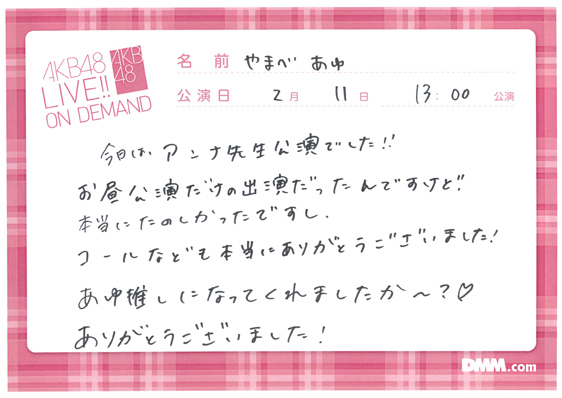 AKB48
LIVE!!
ON DEMAND
AKB
48
名前 やまべ あゆ
公演日 2月 11日 13:00 公演
今日は、アンナ先生公演でした!!
お昼公演だけの出演だったんですけど!!
本当にたのしかったですし、
コールなども本当にありがとうございました!
あゆ推しになってくれましたか〜?♡
ありがとうございました!
DMM.com